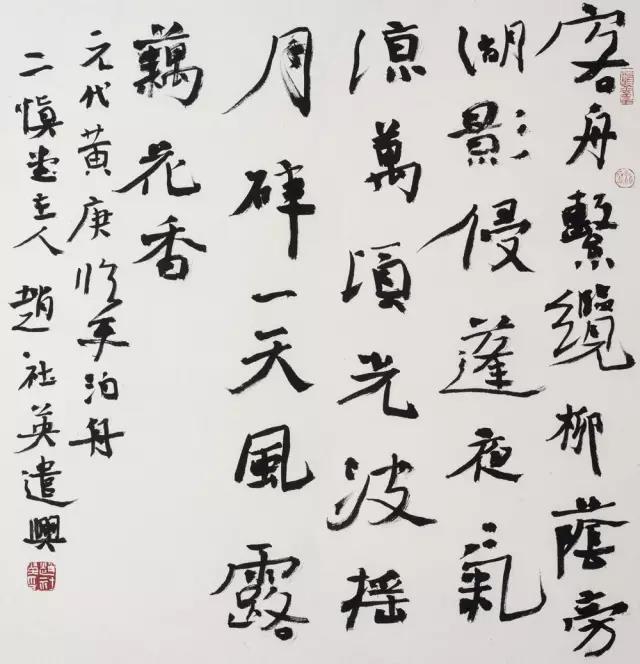 客舟繫纜柳蔭旁
湖影侵蓬夜氣
涼萬頃光波摇
月碎一天風露
藕花香
元代黄庚临平泊舟
二慎堂主人 趙社英遣興